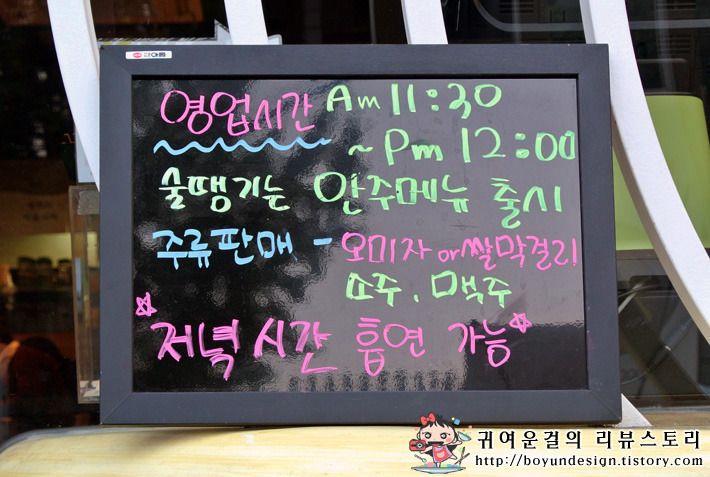 영업시간 Am 11:30
~ Pm 12:00
술땡기는 안주메뉴 출시
주류판매 - 오미자 or 쌀막걸리
소주, 맥주
저녁시간 흡연 가능
귀여운걸의 리뷰스토리
http://boyundesign.tistory.com